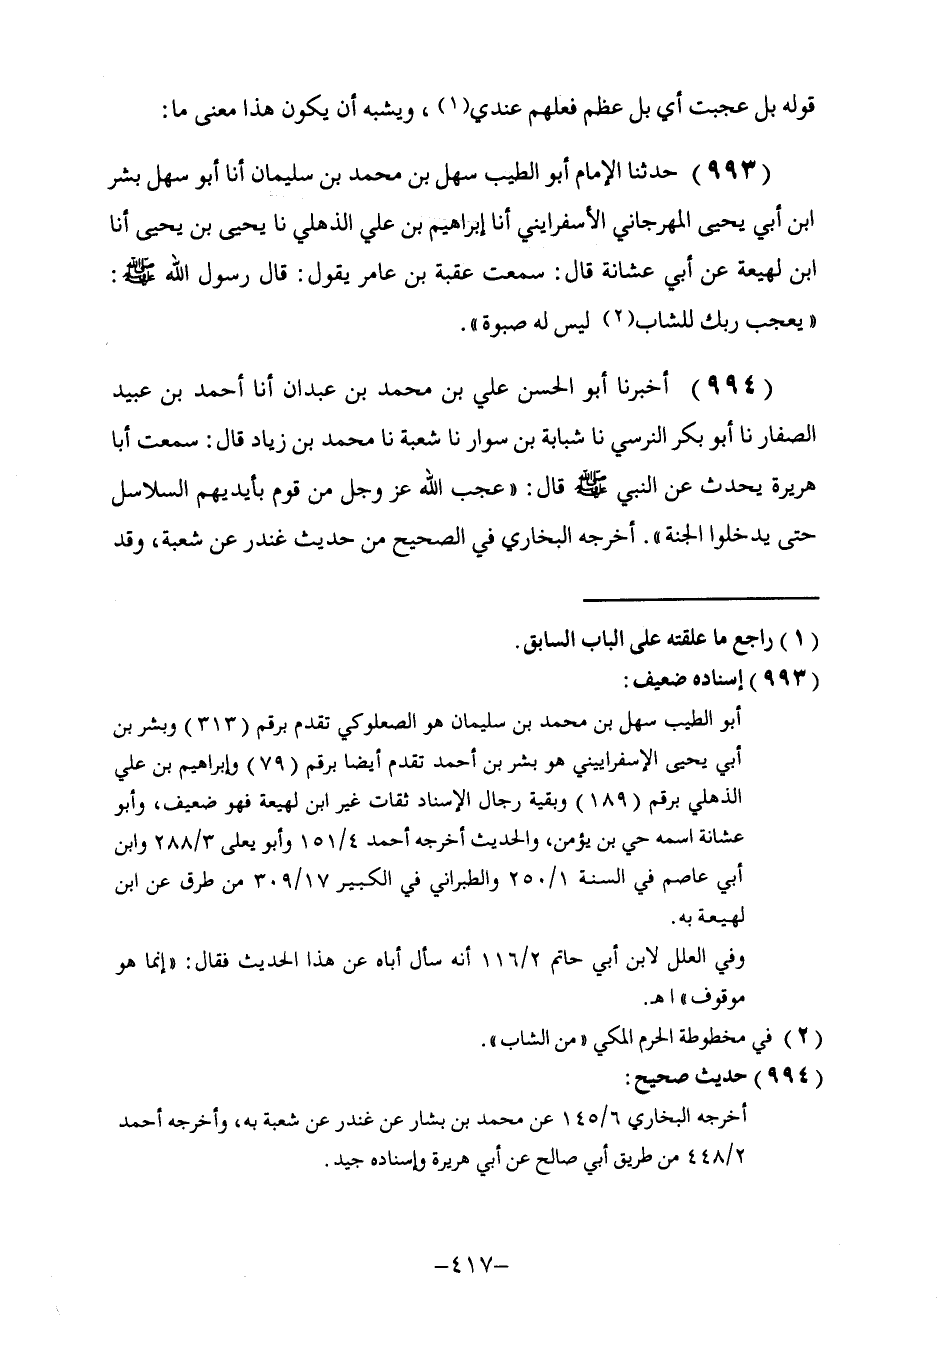 قوله بل عجبت أي بل عظم فعلهم عندي(١) ، ويشبه أن يكون هذا معنى ما:
(٩٩٣) حدثنا الإمام أبو الطيب سهل بن محمد بن سليمان أنا أبو سهل بشر
ابن أبي يحيى المهرجاني الأسفرايني أنا إبراهيم بن علي الذهلي نا يحيى بن يحيى أنا
ابن لهيعة عن أبي عشانة قال: سمعت عقبة بن عامر يقول: قال رسول الله ﷺ :
«يعجب ربك للشاب(٢) ليس له صبوة».
(٩٩٤) أخبرنا أبو الحسن علي بن محمد بن عبدان أنا أحمد بن عبيد
الصفار نا أبو بكر النرسي نا شبابة بن سوار نا شعبة نا محمد بن زياد قال: سمعت أبا
هريرة يحدث عن النبي ﷺ قال: «عجب الله عز وجل من قوم بأيديهم السلاسل
حتى يدخلوا الجنة». أخرجه البخاري في الصحيح من حديث غندر عن شعبة، وقد
(١) راجع ما علقته على الباب السابق.
(٩٩٣) إسناده ضعيف:
أبو الطيب سهل بن محمد بن سليمان هو الصعلوكي تقدم برقم (٣١٣) وبشر بن
أبي يحيى الإسفراييني هو بشر بن أحمد تقدم أيضا برقم (٧٩) وإبراهيم بن علي
الذهلي برقم (١٨٩) وبقية رجال الإسناد ثقات غير ابن لهيعة فهو ضعيف، وأبو
عشانة اسمه حي بن يؤمن، والحديث أخرجه أحمد ١٥١/٤ وأبو يعلى ٢٨٨/٣ وابن
أبي عاصم في السنة ٢٥٠/١ والطبراني في الكبير ٣٠٩/١٧ من طرق عن ابن
لهيعة به.
وفي العلل لابن أبي حاتم ١١٦/٢ أنه سأل أباه عن هذا الحديث فقال: «إنما هو
موقوف» ا هـ.
(٢) في مخطوطة الحرم المكي «من الشاب».
(٩٩٤) حديث صحيح:
أخرجه البخاري ١٤٥/٦ عن محمد بن بشار عن غندر عن شعبة به، وأخرجه أحمد
٤٤٨/٢ من طريق أبي صالح عن أبي هريرة وإسناده جيد.
-٤١٧-